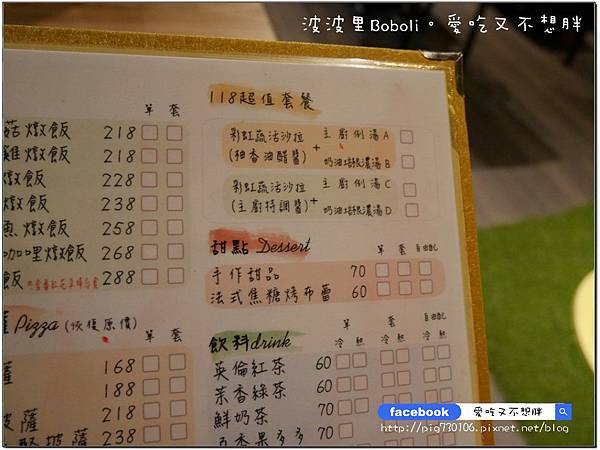 波波里Boboli。愛吃又不想胖
單 套
菇燉飯 218
雞燉飯 218
燉飯 228
燉飯 238
魚燉飯 258
咖哩燉飯 268
飯 288
Pizza (恢復原價)
單 套
薩 168
188
披薩 218
披薩 238
118超值套餐
彩虹蔬活沙拉 (柚香油醋醬) + 主廚例湯 A
奶油培根濃湯 B
彩虹蔬活沙拉 (主廚特調醬) + 主廚例湯 C
奶油培根濃湯 D
甜點 Dessert 單 套 自由配
手作甜品 70
法式焦糖烤布蕾 60
飲料drink 單 套 自由配
冷 熱 冷 熱 冷 熱
英倫紅茶 60
茉香綠茶 60
鮮奶茶 70
百香果多多 70
facebook 愛吃又不想胖
http://pig730106.pixnet.net/blog